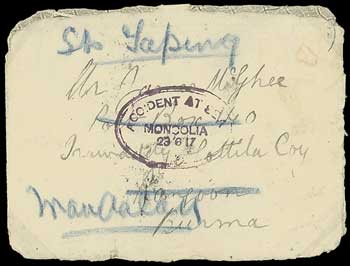 SS Taping
Mr
McGhee
Box
ACCIDENT AT SEA
MONGOLIA
23 6 17
Irrawaddy Flotilla Coy
Rangoon
Mandalay
Burma